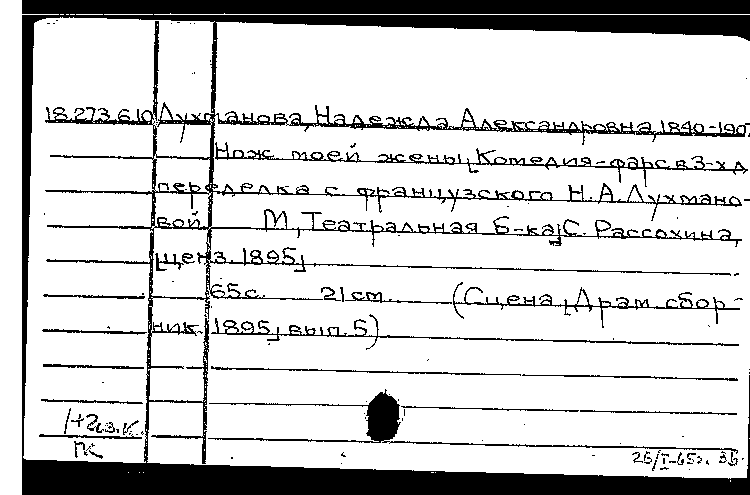 18.273.610 Лухманова, Надежда Александровна, 1840-1907
Нож моей жены[.] Комедия-фарс в 3-х д.
переделка с французского Н.А. Лухмано-
вой. М., Театральная б-ка] С. Рассохина,
[ценз. 1895]
65 с. 21 см. (Сцена[.] Драм. сбор-
ник. 1895] вып. 5)
1+2из.к.
ПК
26/I-65г.